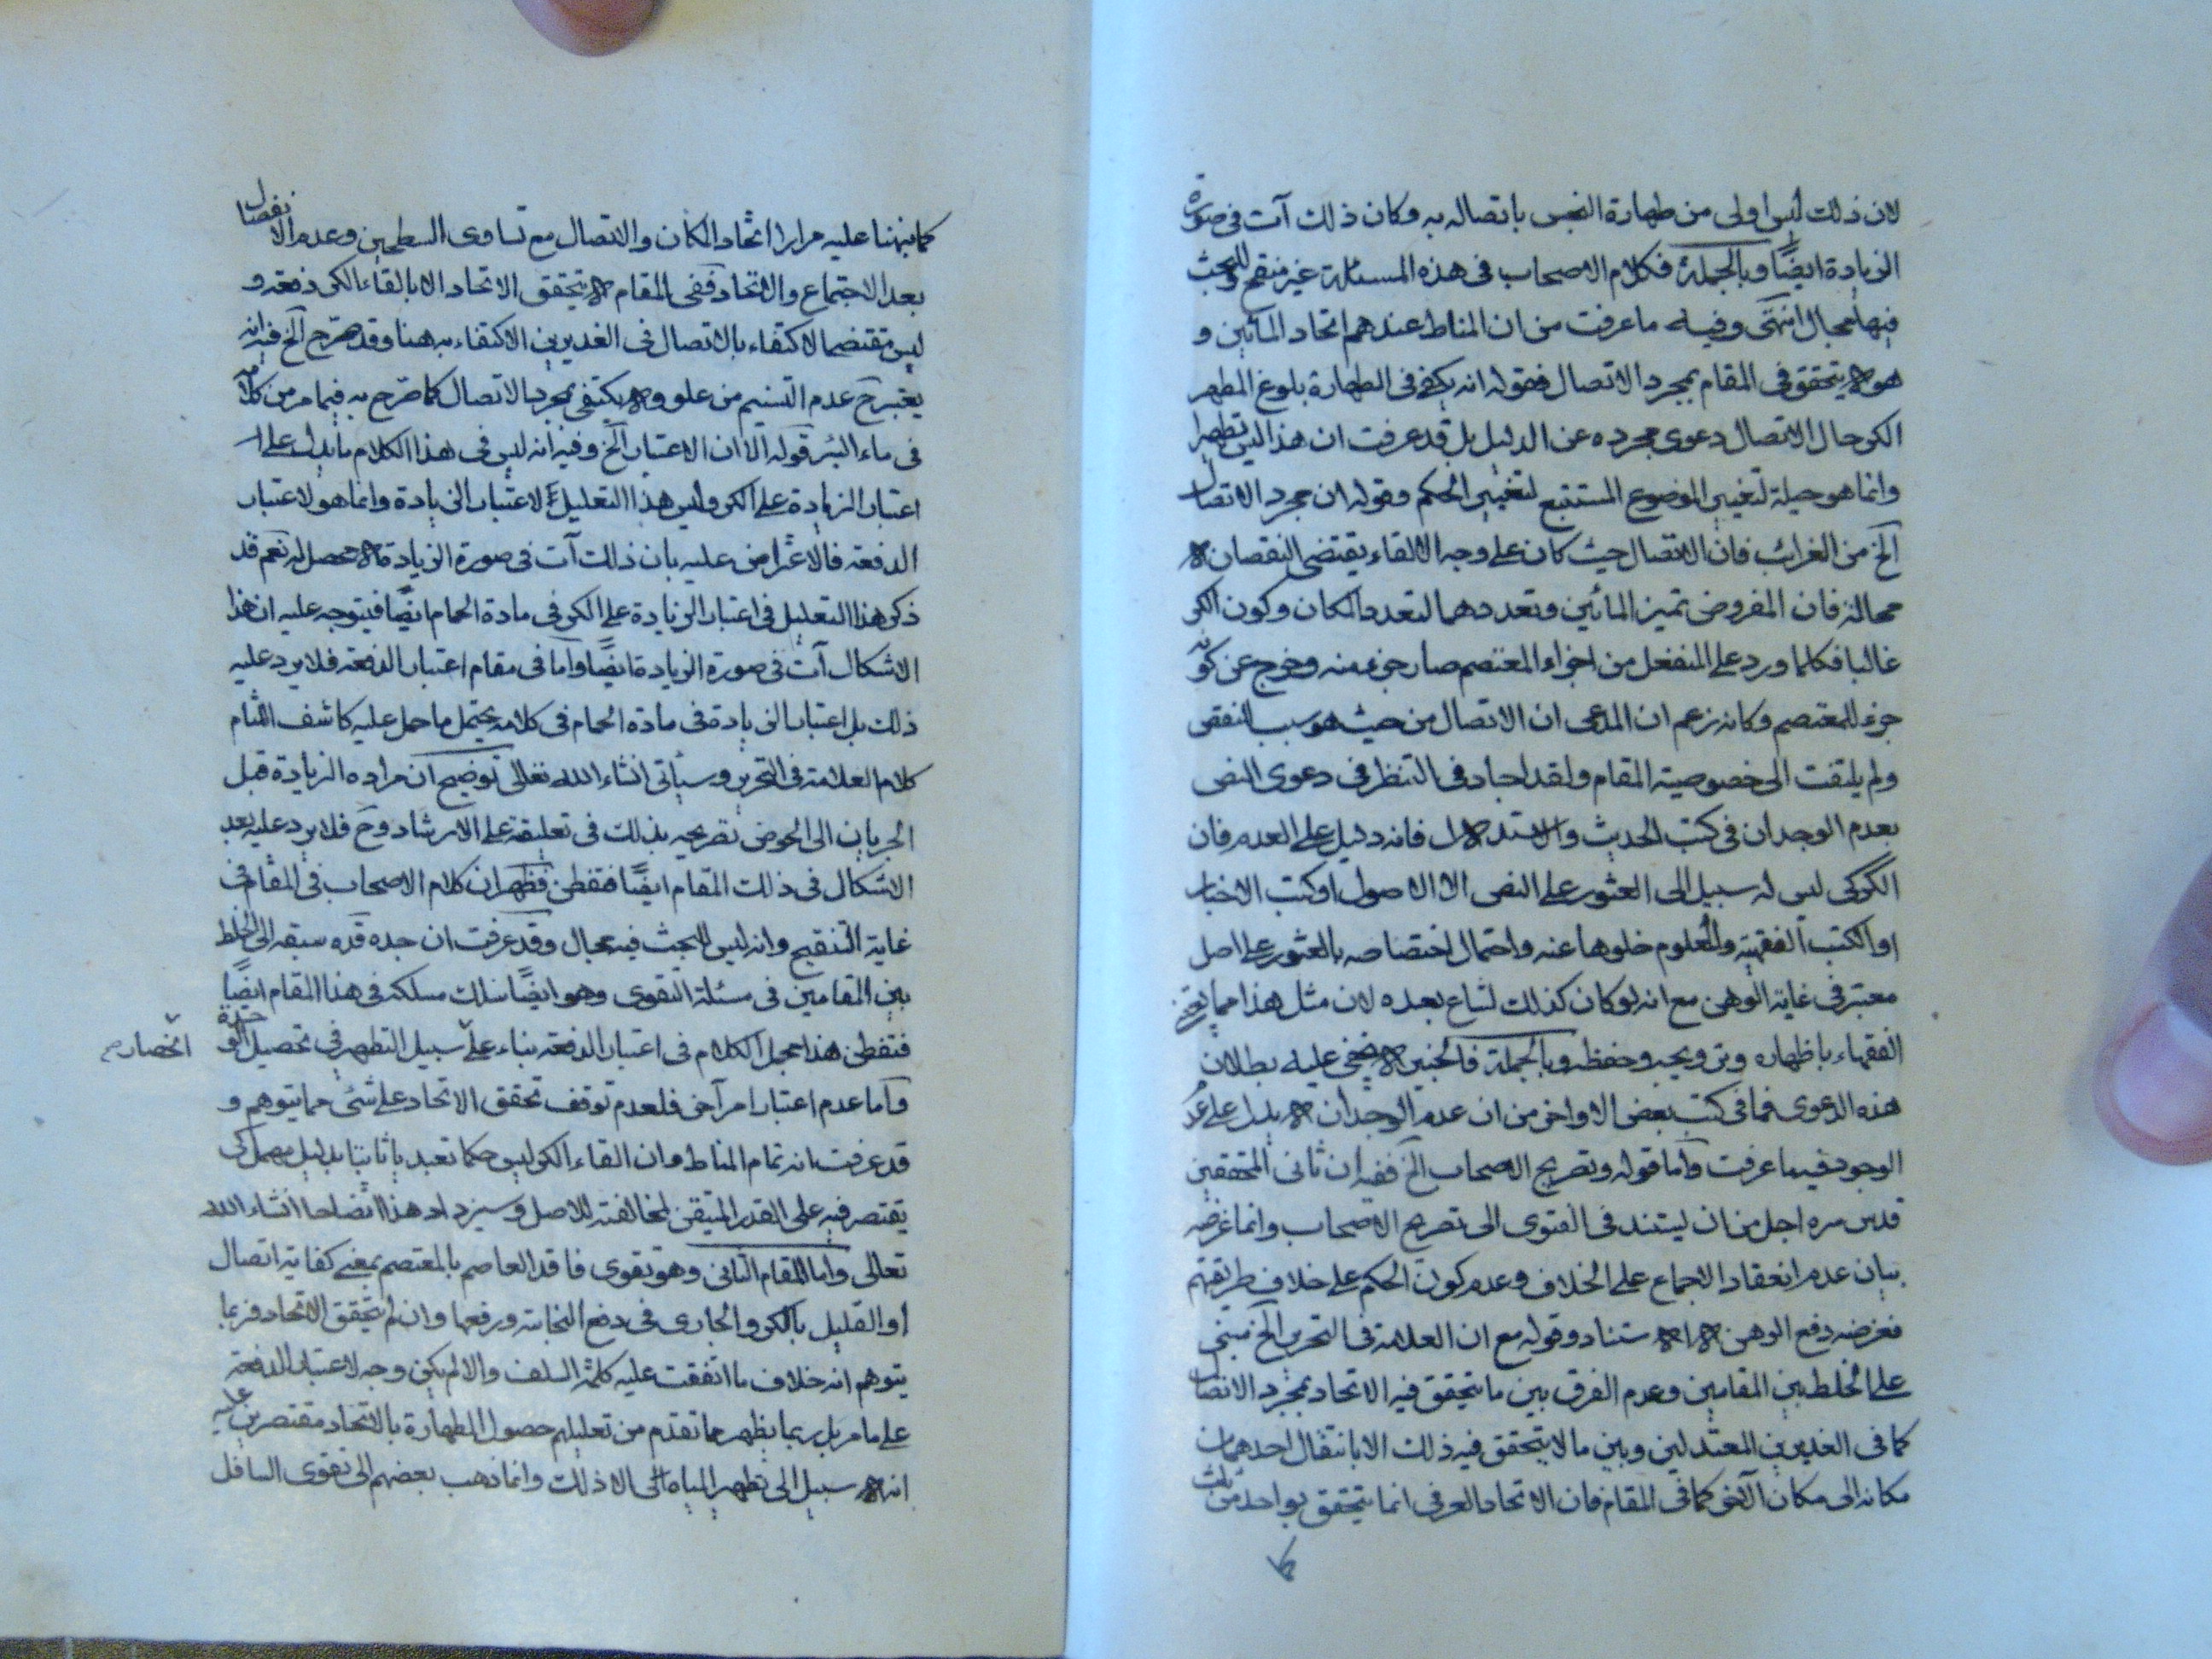 لان ذلك ليس اولى من طهارة النجس باتصاله به وكان ذلك آت فى صورة
الزيادة ايضًا وبالجملة فكلام الاصحاب فى هذه المسئلة غير منقح وللبحث
فيها مجال انتهى وفيه ما عرفت من ان المناط عندهم اتحاد المائين و
هو لا يتحقق فى المقام بمجرد الاتصال فقوله انه يكفى فى الطهارة بلوغ المطهر
الكر حال الاتصال دعوى مجرده عن الدليل بل قد عرفت ان هذا ليس تطهيرا
وانما هو حيلة لتغيير الموضوع المستتبع لتغيير الحكم وقوله ان مجرد الاتصال
الخ من الغرائب فان الاتصال حيث كان على وجه الالقاء يقتضى النقصان لا
محالة فان المفروض تميز المائين وتعددهما لتعدد المكان وكون الكر
غالبا فكلما ورد على المنفعل من اجزاء المعتصم صار جزء منه وخرج عن كونه
جزء للمعتصم وكانه زعم ان المدعى ان الاتصال من حيث هو سبب للنقص
ولم يلتفت الى خصوصية المقام ولقد اجاد فى التنظر فى دعوى النص
بعدم الوجدان فى كتب الحديث والاستدلال فانه دليل على العدم فان
الكركى ليس له سبيل الى العثور على النص الا الاصول او كتب الاخبار
او الكتب الفقهية والمعلوم خلوها عنه واحتمال اختصاصه بالعثور على اصل
معتبر فى غاية الوهن مع انه لو كان كذلك لشاع بعده لان مثل هذا مما يعتنى
الفقهاء باظهاره وترويجه وحفظه وبالجملة فالخبير لا يخفى عليه بطلان
هذه الدعوى فما فى كتب بعض الاواخر من ان عدم الوجدان لا يدل على عدم
الوجود فيه ما عرفت واما قوله وتصريح الاصحاب الخ ففيه ان ثانى المحققين
قدس سره اجل من ان يستند فى الفتوى الى تصريح الاصحاب وانما غرضه
بيان عدم انعقاد الاجماع على الخلاف وعدم كون الحكم على خلاف طريقتهم
فغرضه دفع الوهن لا الاستناد وقوله مع ان العلامة فى التحرير الخ مبنى
على الخلط بين المقامين وعدم الفرق بين ما يتحقق فيه الاتحاد بمجرد الاتصال
كما فى الغديرين المعتدلين وبين ما لا يتحقق فيه ذلك الا بانتقال احدهما من
مكانه الى مكان الآخر كما فى المقام فان الاتحاد العرفى انما يتحقق بواحد من ثلث
كما نبهنا عليه مرارا اتحاد المكان والاتصال مع تساوى السطحين وعدم الانفصال
بعد الاجتماع والاتحاد ففى المقام لا يتحقق الاتحاد الا بالقاء الكر دفعة و
ليس مقتضى الاكتفاء بالاتصال فى الغديرين الاكتفاء به هنا وقد صرح الخ فيه انه
يعتبر ح عدم التسنيم من علو ولا يكتفى بمجرد الاتصال كما صرح به فيما مر من كلامه
فى ماء البئر قوله الا ان الاعتبار الخ وفيه انه ليس فى هذا الكلام ما يدل على
اعتبار الزيادة على الكر وليس هذا التعليل لاعتبار الزيادة وانما هو لاعتبار
الدفعة فالاعتراض عليه بان ذلك آت فى صورة الزيادة لا محصل له نعم قد
ذكر هذا التعليل فى اعتبار الزيادة على الكر فى مادة الحمام ايضًا فيتوجه عليه ان هذا
الاشكال آت فى صورة الزيادة ايضًا واما فى مقام اعتبار الدفعة فلا يرد عليه
ذلك بل اعتبار الزيادة فى مادة الحمام فى كلامه يحتمل ما حمل عليه كاشف اللثام
كلام العلامة فى التحرير وسيأتى انشاء الله تعالى توضيح ان مراده الزيادة قبل
الجريان الى الحوض تصريحه بذلك فى تعليقه على الارشاد وح فلا يرد عليه بعد
الاشكال فى ذلك المقام ايضًا فتفطن فظهر ان كلام الاصحاب فى المقام فى
غاية التنقيح وانه ليس للبحث فيه مجال وقد عرفت ان جده قده سبقه الى الخلط
بين المقامين فى مسئلة التقوى وهو ايضًا سلك مسلكه فى هذا المقام ايضًا
فتفطن هذا مجمل الكلام فى اعتبار الدفعة بناء على سبيل التطهير فى تحصيل الوحدة
انحصار
واما عدم اعتبار امر آخر فلعدم توقف تحقق الاتحاد على شئ مما يتوهم و
قد عرفت انه تمام المناط وان القاء الكر ليس حكما تعبديا ثابتا بدليل مهمل كى
يقتصر فيه على القدر المتيقن لمخالفته للاصل وسيزداد هذا اتضاحا انشاء الله
تعالى واما المقام الثانى وهو تقوى فاقد العاصم بالمعتصم بمعنى كفاية اتصال
او القليل بالكر والجارى فى دفع النجاسة ورفعها وان لم يتحقق الاتحاد فربما
يتوهم انه خلاف ما اتفقت عليه كلمة السلف والا لم يكن وجه لاعتبار الدفعة
على ما مر بل ربما يظهر مما تقدم من تعليلهم حصول الطهارة بالاتحاد مقتصرين عليه
انه لا سبيل الى تطهير المياه الا ذلك وانما ذهب بعضهم الى تقوى السافل